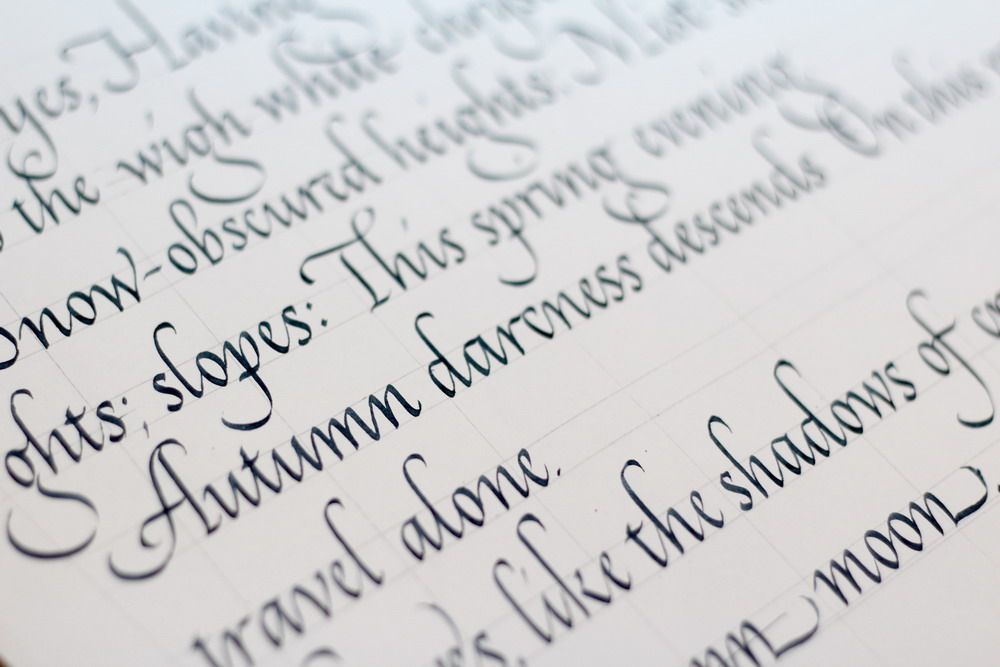 yes, Having
the wigh white
Snow-obscured heights.
ghts; slopes: This spring evening
Autumn darcness descends On this
travel alone.
like the shadows of
moon.